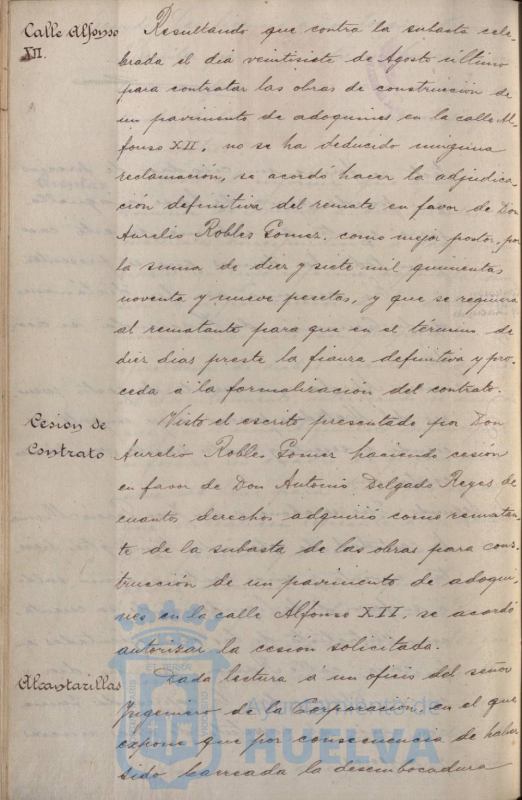 Calle Alfonso
XII.
Resultando que contra la subasta cele-
brada el dia veintisiete de Agosto último
para contratar las obras de construcción de
un pavimento de adoquines en la calle Al-
fonso XII, no se ha deducido ninguna
reclamación, se acordó hacer la adjudica-
ción definitiva del remate en favor de Don
Aurelio Robles Gomez, como mejor postor, por
la suma de diez y siete mil quinientas
noventa y nueve pesetas, y que se requiera
al rematante para que en el término de
diez dias preste la fianza definitiva y pro-
ceda á la formalización del contrato.
Cesion de
Contrato
Visto el escrito presentado por Don
Aurelio Robles Gomez haciendo cesión
en favor de Don Antonio Delgado Reyes de
cuantos derechos adquirió como rematan-
te de la subasta de las obras para cons-
trucción de un pavimento de adoqui-
nes en la calle Alfonso XII, se acordó
autorizar la cesión solicitada.
Alcantarillas
Dada lectura á un oficio del señor
Ingeniero de la Corporación en el que
expone que por consecuencia de haber
sido barreada la desembocadura
Ayuntamiento de
HUELVA